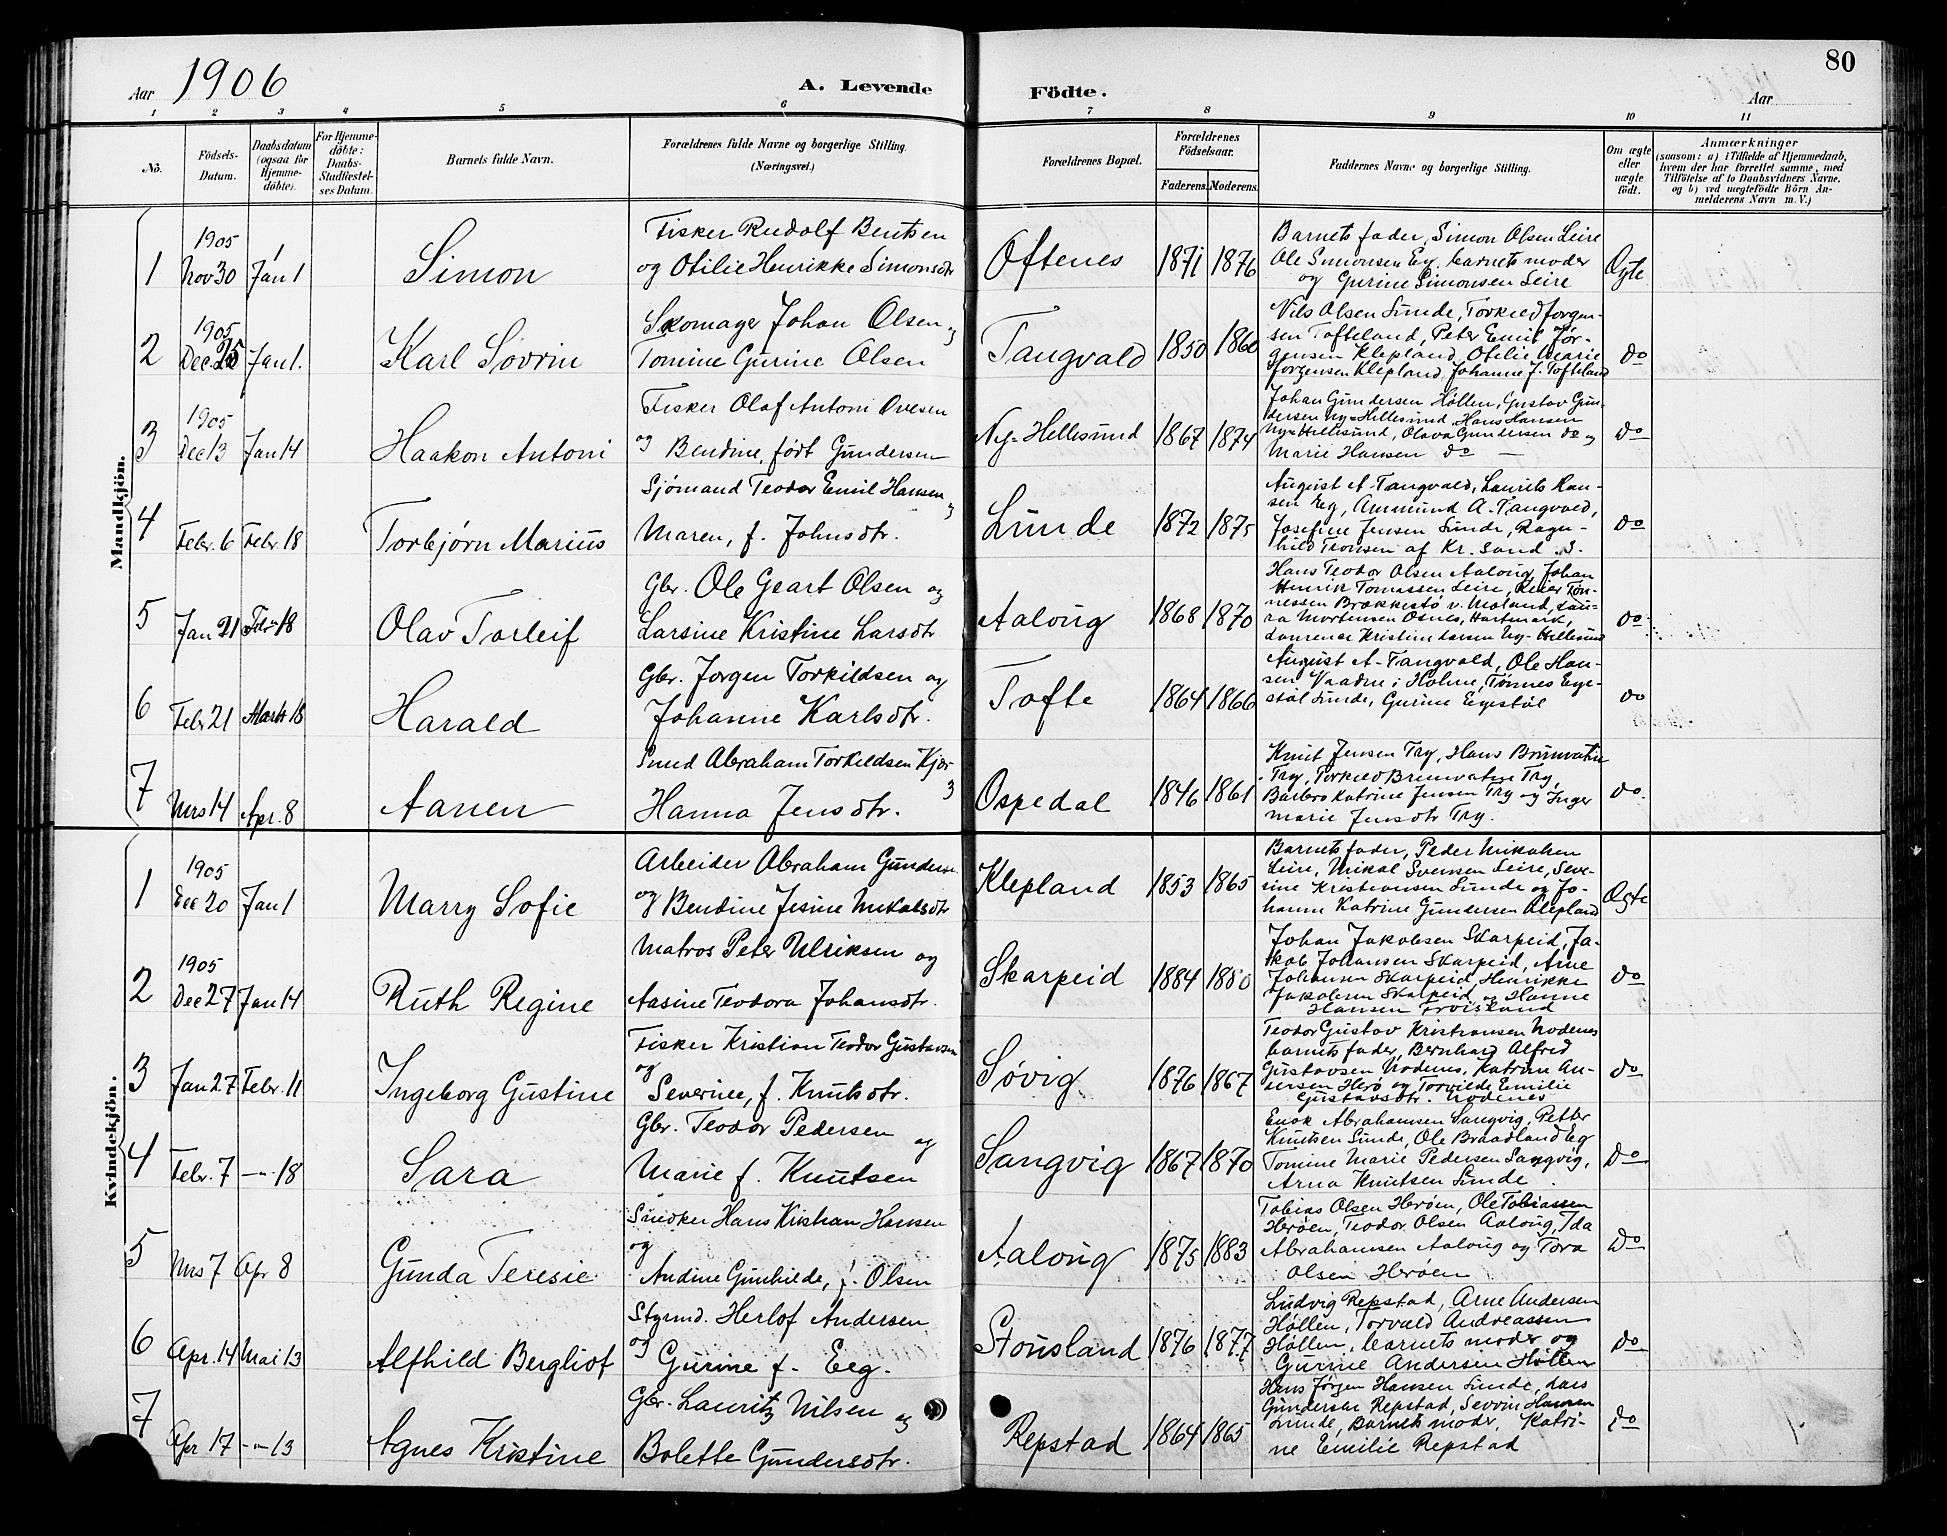 80
Aar 1906
A. Levende Födte.
Aar
1 2 3 4 5 6 7 8 9 10 11
No.
Födsels-Datum.
Daabsdatum (ogsaa for Hjemme-döbte).
For Hjemme-döbte: Daabs-Stadfæstel-ses Datum.
Barnets fulde Navn.
Forældrenes fulde Navne og borgerlige Stilling. (Næringsvei.)
Forældrenes Bopæl.
Forældrenes Födselsaar.
Faderens. Moderens.
Faddernes Navne og borgerlige Stilling.
Om ægte eller uægte födt.
Anmærkninger
(saasom: a) i Tilfælde af Hjemmedaab,
hvem der har forrettet samme, med
Tilföielse af to Daabsvidners Navne.
og b) ved uægtefödte Börn An-
melderens Navn m. V.)
Mandkjön.
1 1905 Nov 30 Jan 1 Simon
Fisker Rudolf Bentsen
og Otilie Henrikke Simonsdtr
Oftenes 1871 1876
Barnets fader, Simon Olsen Leire
Ole Simonsen Eg, barnets moder
og Gurine Simonsen Leire
Ægte
2 1905 Dec 25 Jan 1. Karl Søvrin
Skomager Johan Olsen og
Tomine Gurine Olsen
Tangvald 1850 1860
Nils Olsen Lunde, Torkied Jorgen-
sen Tofteland, Peter Emil Jør-
gensen Klepland, Otilie Marie
Jorgensen Klepland, Johanne J. Tofteland
do
3 1905 Dec 13 Jan 14 Haakon Antoni
Fisker Olaf Antoni Ovesen
og Bendine, født Gundersen
Ny-Hellesund 1867 1874
Johan Gundersen Høllen, Gustav Gun-
dersen Ny-Hellesund, Hans Hansen
Ny-Hellesund, Olava Gundersen do og
Marie Hansen do —
do
4 Febr. 6 Febr. 18 Torbjørn Marius
Sjømand Teodor Emil Hansen og
Maren, f. Johnsdtr.
Lunde 1872 1875
August A. Tangvald, Laurits Han-
sen Eg, Ammund A. Tangvald,
Josefine Jensen Lunde, Ragn-
hild Tronsen af Kr. sand S.
do
5 Jan 21 Febr 18 Olav Torleif
Gbr. Ole Geart Olsen og
Larsine Kristine Larsdtr
Aalong 1868 1870
Hans Teodor Olsen Aalong, Johan
Henrik Tomassen Leire, Peter Tøn-
nessen Brækkestø v. Moland, Lau-
ra Mortensen Osnes, Hartmark,
Laurence Kristine Larsen Ny-Hellesund
do
6 Febr 21 Marts 18 Harald
Gbr. Jorgen Torkildsen og
Johanne Karlsdtr.
Tofte 1864 1866
August A. Tangvald, Ole Han-
sen Vaadne i Holme, Tønnes Ege-
støl Lunde, Gurine Egestøl
do
7 Mrs 14 Apr. 8 Aanen
Smed Abraham Torkildsen Kjær
og Hanna Jensdtr.
Ospedal 1846 1861
Knut Jensen Try, Hans Brunvatne
Try, Torkild Brunvatne Try,
Barbro Katrine Jensen Try og Inger
Marie Jensdtr Try.
do.
Kvindekjön.
1 1905 Dec 20 Jan 1 Marry Sofie
Arbeider Abraham Gundersen
og Bendine Jesine Mikalsdtr
Klepland 1853 1865
Barnets fader, Peder Mikalsen
Leire, Mikal Svensen Leire, Seve-
rine Kristiansen Lunde og Jo-
hanne Katrine Gundersen Klepland
Ægte
2 1905 Dec 27 Jan 14 Ruth Regine
Matros Peter Ulriksen og
Aasine Teodora Johansdtr.
Skarpeid 1884 1880
Johan Jakobsen Skarpeid, Ja-
kob Johansen Skarpeid, Arne
Johansen Skarpeid, Henrikke
Jakobsen Skarpeid, og Hanne
Hansen Frøisland
do
3 Jan 27 Febr. 11 Ingeborg Gustine
Fisker Kristian Teodor Gustavsen
og Severine, f. Knutsdtr.
Søvig 1876 1867
Teodor Gustav Kristiansen Nodenes
barnets fader, Bernhard Alfred
Gustavsen Nodenes, Katrine An-
dersen Herø og Torvilde Emilie
Gustavsdtr. Nodenes
do
4 Febr. 7 —"— 18 Sara
Gbr. Teodor Pedersen og
Marie f. Knutsen
Langvig 1867 1870
Enok Abrahamsen Langvig, Petter
Knutsen Lunde, Ole Braadland Eg
Tomine Marie Pedersen Langvig,
Arna Knutsen Lunde.
do
5 Mrs 7 Apr 8 Gunda Teresie
Snedker Hans Kristian Hansen
og Andine Gunhilde, f. Olsen
Aalong 1875 1883
Tobias Olsen Herøen, Ole Tobiassen
Herøen, Teodor Olsen Aalong, Ida
Abrahamsen Aalong og Tora
Olsen Herøen
do
6 Apr. 14 Mai 13 Alfhild Bergliot
Styrmd. Herlof Andersen
og Gurine f. Eeg.
Stousland 1876 1877
Ludvig Repstad, Arne Andersen
Høllen, Torvald Andreassen
Høllen, barnets moder og
Gurine Andersen Høllen
do
7 Apr 17 —"— 13 Agnes Kristine
Gbr. Lauritz Nilsen og
Bolette Gundersdtr.
Repstad 1864 1865
Hans Jørgen Hansen Lunde, Lars
Gundersen Repstad, Sevrin Hansen
Lunde, Barnets moder, Katri-
ne Emilie Repstad
do